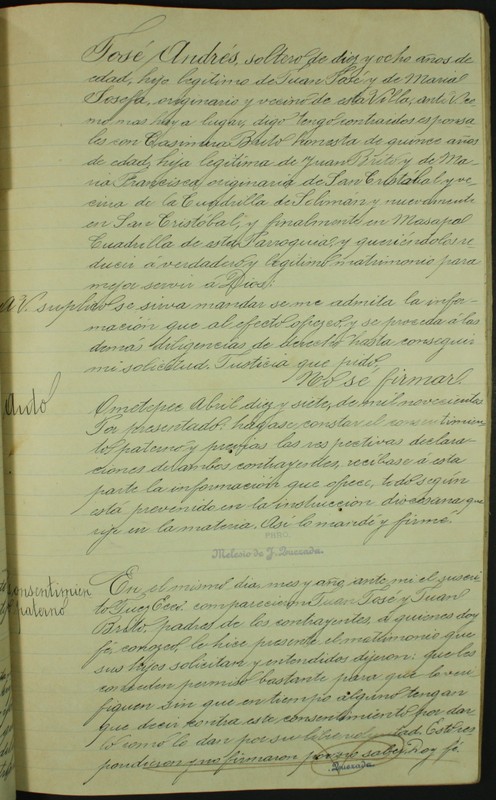 José Andrés, soltero de diez y ocho años de
edad, hijo legítimo de Juan José y de María
Josefa, originario y vecino de esta Villa, ante V. co
mo mas haya lugar, digo: tengo contraidos esponsa
les con Casimira Brito honesta de quince años
de edad, hija legítima de Juan Brito y de Ma-
ria Francisca, originaria de San Cristóbal y ve-
cina de la Cuadrilla de Soliman y nuevamente
en San Cristóbal; y finalmente en Masapa
Cuadrilla de esta Parroquia; y queriéndolos re
ducir á verdadero y legítimo matrimonio para
mejor servir á Dios:
A V. suplico se sirva mandar se me admita la infor-
mación que al efecto ofrezco, y se proceda á las
demás diligencias de derecho hasta conseguir
mi solicitud. Justicia que pido,
No se firmar.
Auto
Ometepec Abril diez y siete, de mil novecientos
Por presentado, hágase constar el consentimien
to paterno, y previas las respectivas declara-
ciones de ambos contrayentes, recíbase á esta
parte la información que ofrece, todo según
está prevenido en la instrucción diocesana que
rije en la materia. Así lo mandé y firmé.
PBRO.
Melesio de J. Quezada.
Consentimien
to paterno
En el mismo dia mes y año, ante mi el suscri
to Juez Ecco. comparecieron Juan José y Juan
Brito, padres de los contrayentes, á quienes doy
fé, conozco, les hice presente el matrimonio que
sus hijos solicitan y entendidos dijeron: que les
conceden permiso bastante para que lo veri
fiquen sin que en tiempo alguno tengan
que decir contra este consentimiento por dar
lo como lo dan por su libre voluntad. Esto res
pondieron y no firmaron por no saber. Doy fé.
Quezada.